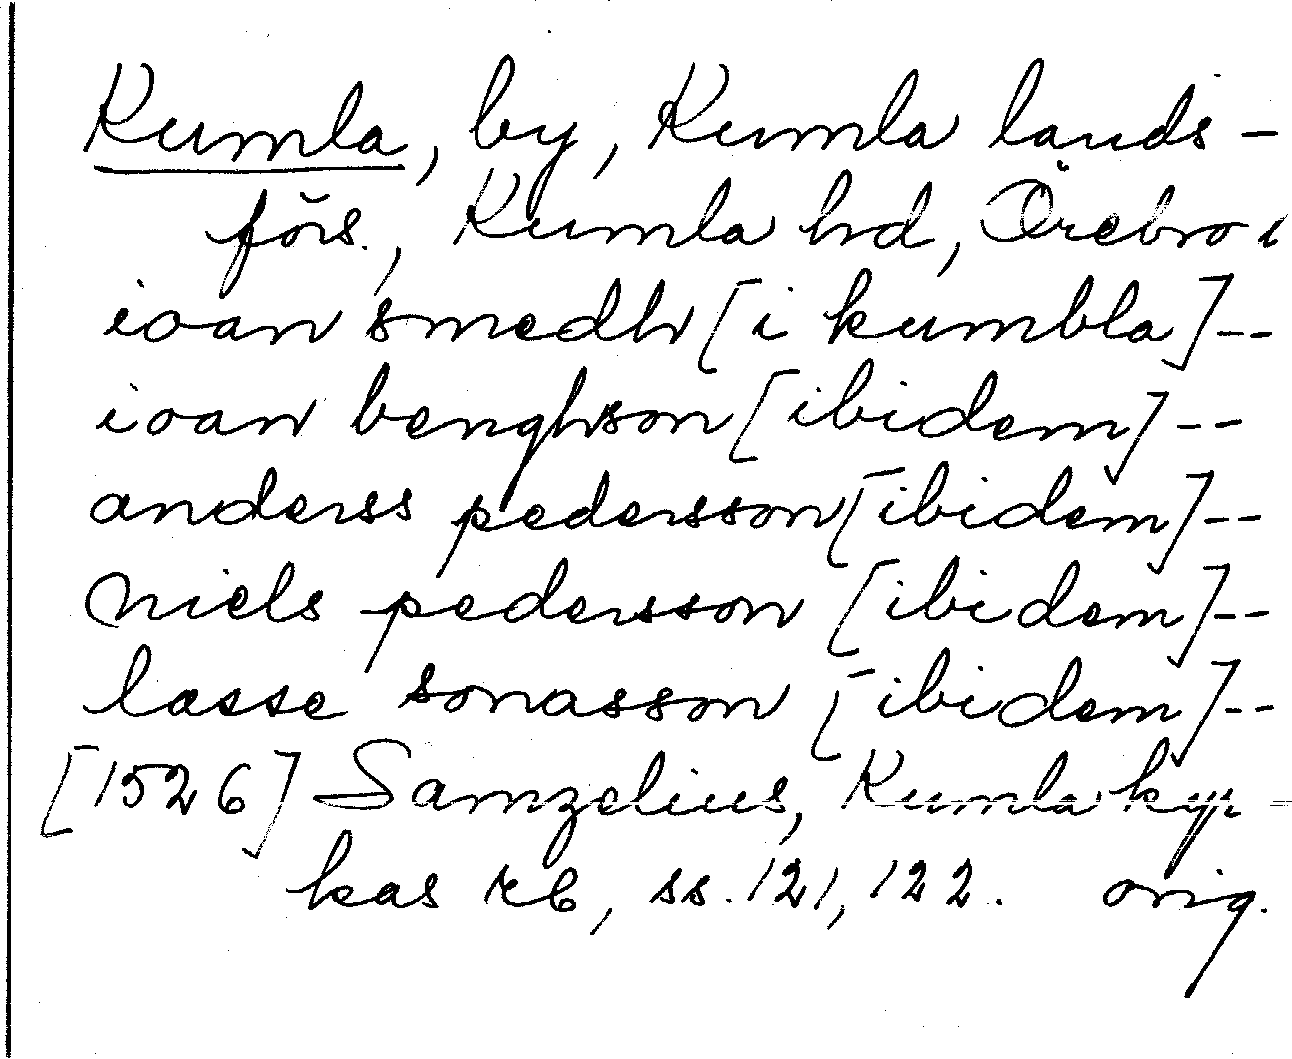 Kumla, by, Kumla lands-
förs., Kumla hd, Örebro l
ioan smedh [i kumbla]--
ioan benghson [ibidem]--
anderss pedersson [ibidem]--
Niels pedersson [ibidem]--
lasse sonasson [ibidem]--
[1526] Samzelius, Kumla kyr-
kas rb, ss. 121, 122. orig.